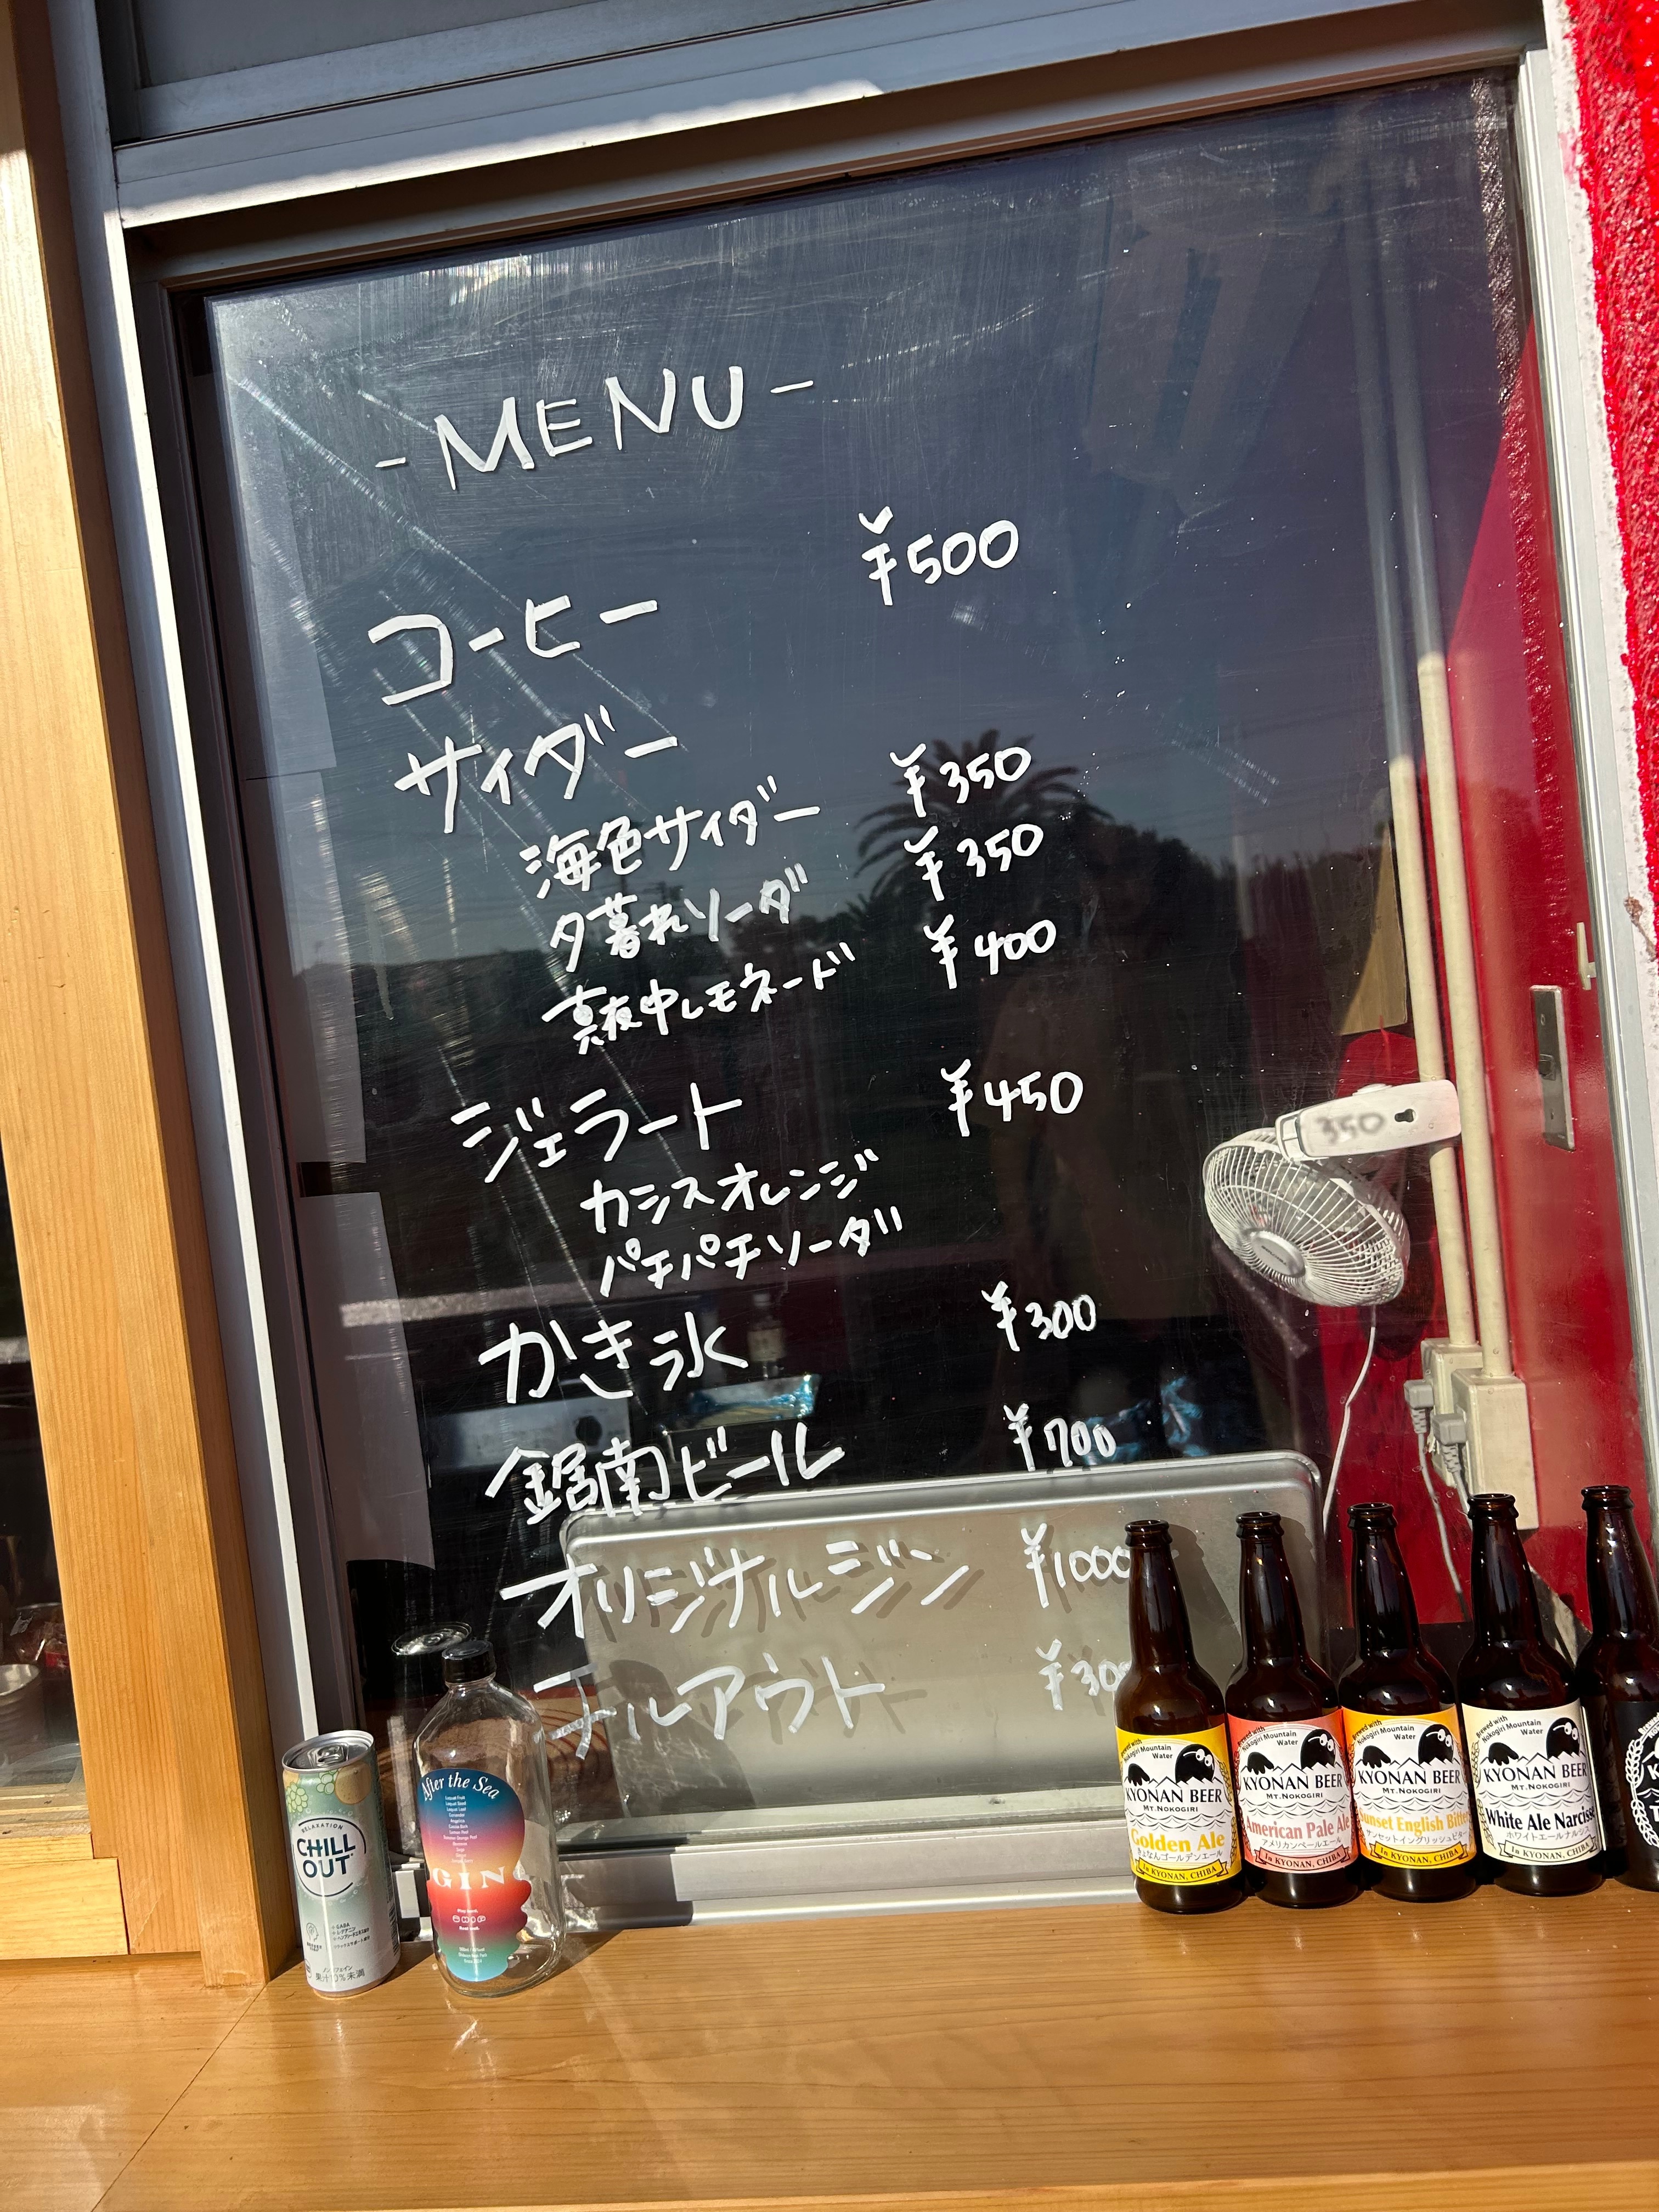 - MENU -
コーヒー ¥500
サイダー
海色サイダー ¥350
夕暮れソーダ ¥350
真夜中レモネード ¥400
ジェラート ¥450
カシスオレンジ
パチパチソーダ
かき氷 ¥300
鋸南ビール ¥700
オリジナルジン ¥1000
チルアウト ¥30
350
RELAXATION
CHILL OUT
果汁10%未満
After the Sea
GIN
Brewed with
Nokogiri Mountain
Water
KYONAN BEER
MT.NOKOGIRI
Golden Ale
きょなんゴールデンエール
In KYONAN, CHIBA
Brewed with
Nokogiri Mountain
Water
KYONAN BEER
MT.NOKOGIRI
American Pale Ale
アメリカンペールエール
In KYONAN, CHIBA
Brewed with
Nokogiri Mountain
Water
KYONAN BEER
MT.NOKOGIRI
Sunset English Bitter
サンセットイングリッシュビター
In KYONAN, CHIBA
Brewed with
Nokogiri Mountain
Water
KYONAN BEER
MT.NOKOGIRI
White Ale Narcisse
ホワイトエールナルシス
In KYONAN, CHIBA